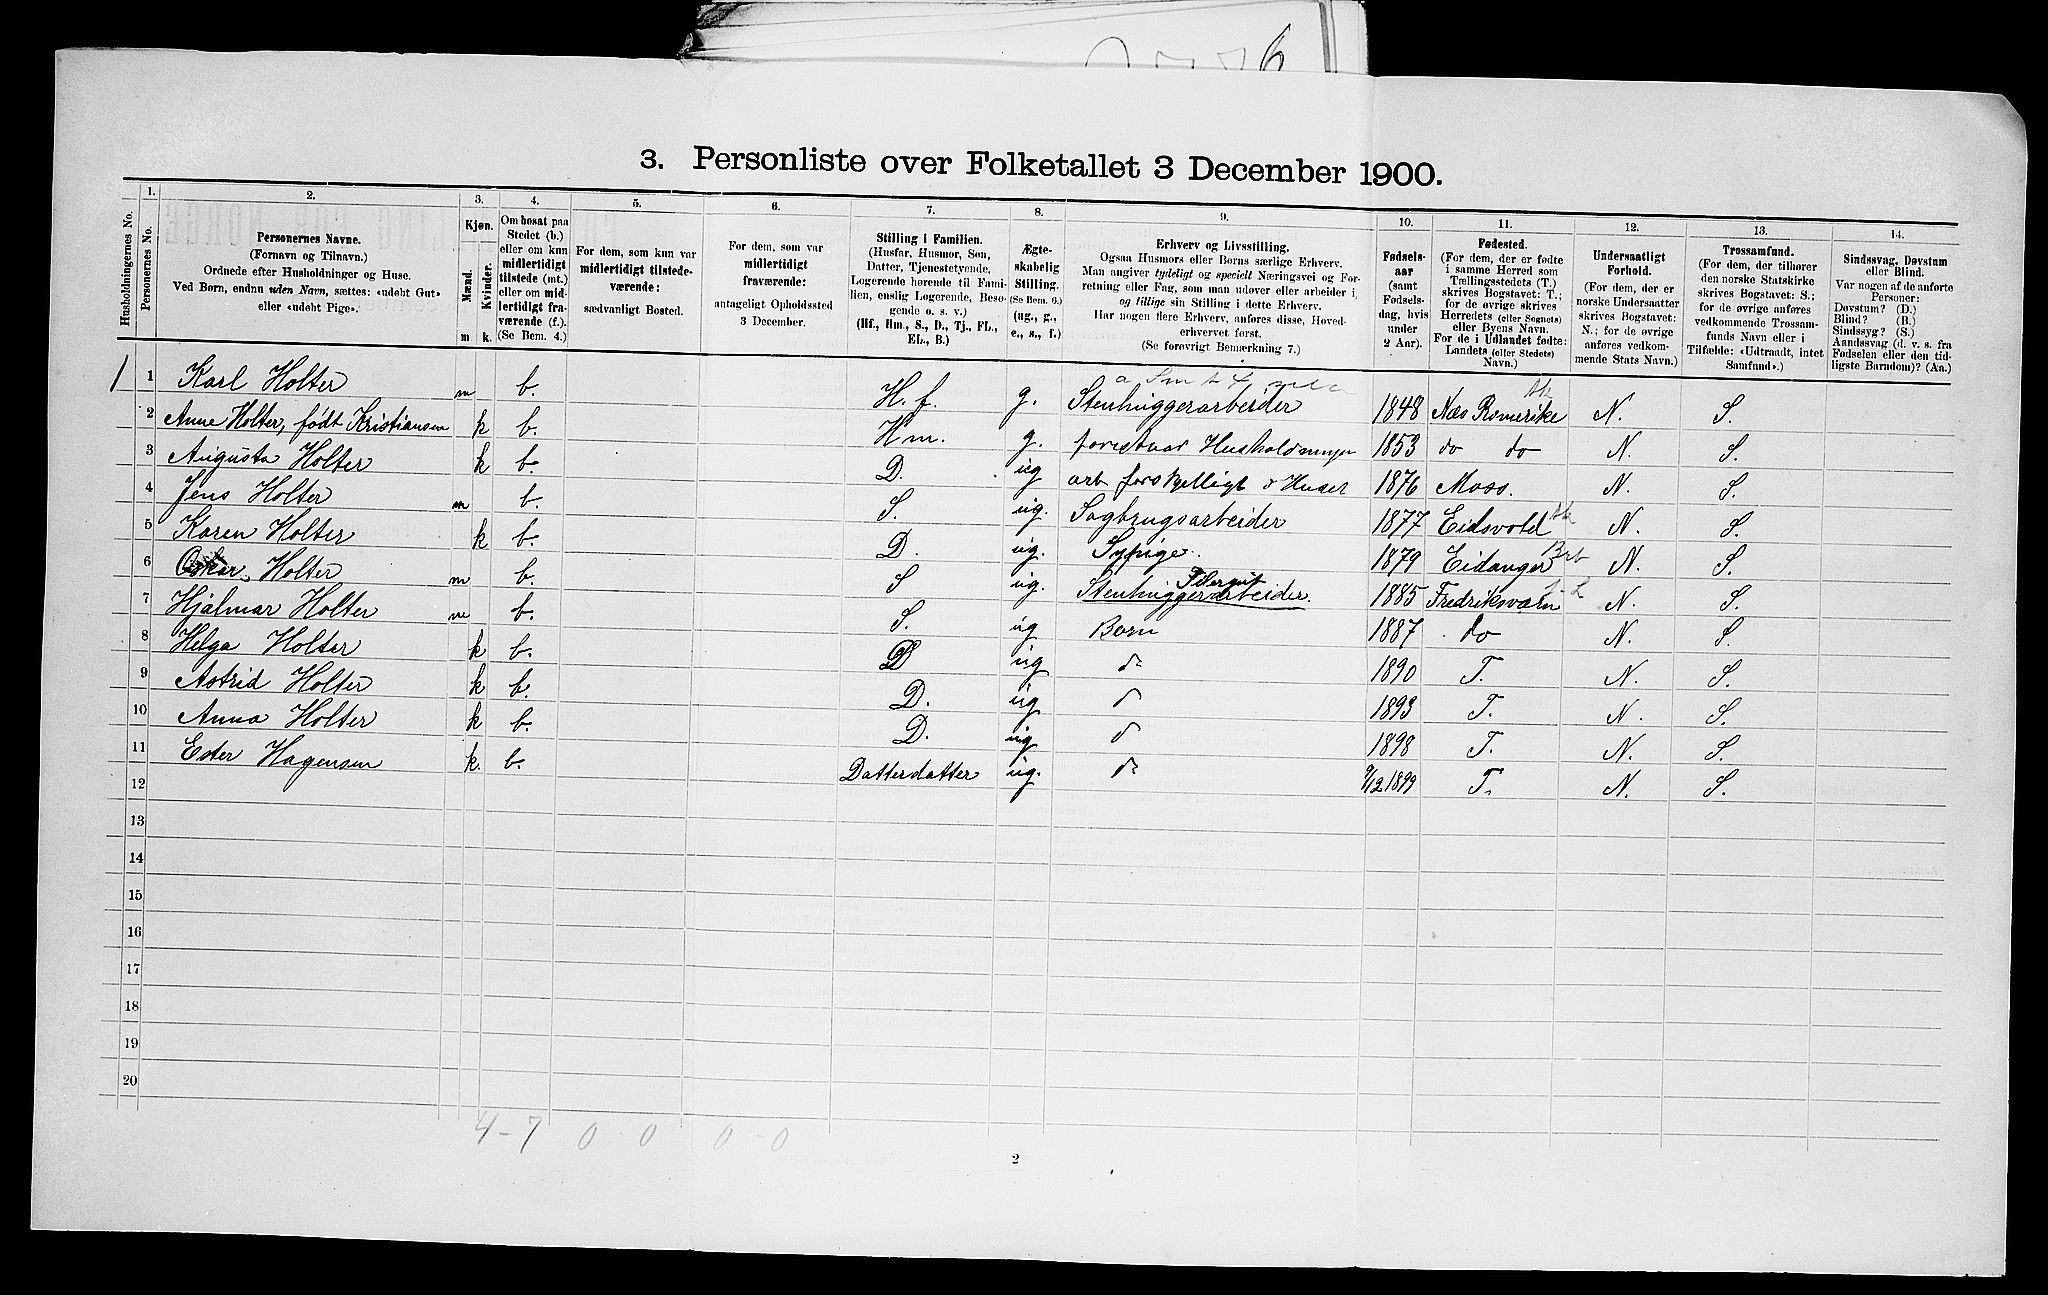 3. Personliste over Folketallet 3 December 1900.
Husholdningernes No.
1.
Personernes No.
2.
Personernes Navne.
(Fornavn og Tilnavn.)
Ordnede efter Husholdninger og Huse.
Ved Børn, endnu uden Navn, sættes: «udøbt Gut»
eller «udøbt Pige».
3.
Kjøn.
Mænd.
Kvinder.
m k.
4.
Om bosat paa
Stedet (b.)
eller om kun
midlertidigt
tilstede (mt.)
eller om mid-
lertidigt fra-
værende (f.).
(Se Bem. 4.)
5.
For dem, som kun var
midlertidigt tilstede-
værende:
sædvanligt Bosted.
6.
For dem, som var
midlertidigt
fraværende:
antageligt Opholdssted
3 December.
7.
Stilling i Familien.
(Husfar, Husmor, Søn,
Datter, Tjenestetyende,
Logerende hørende til Fami-
lien, enslig Logerende, Besø-
gende o. s. v.)
(Hf., Hm., S., D., Tj., FL.,
EL., B.)
8.
Ægte-
skabelig
Stilling.
(Se Bem. 6.)
(ug., g.,
e., s., f.)
9.
Erhverv og Livsstilling.
Ogsaa Husmors eller Børns særlige Erhverv.
Man angiver tydeligt og specielt Næringsvei og For-
retning eller Fag, som man udøver eller arbeider i,
og tillige sin Stilling i dette Erhverv.
Har nogen flere Erhverv, anføres disse, Hoved-
erhvervet først.
(Se forøvrigt Bemærkning 7.)
10.
Fødsels-
aar
(samt
Fødsels-
dag, hvis
under
2 Aar).
11.
Fødested.
(For dem, der er fødte
i samme Herred som
Tællingsstedets (T.)
skrives Bogstavet: T.;
for de øvrige skrives
Herredets (eller Sognets)
eller Byens Navn.
For de i Udlandet fødte:
Landets (eller Stedets)
Navn.)
12.
Undersaatligt
Forhold.
(For dem, der er
norske Undersaatter
skrives Bogstavet:
N.; for de øvrige
anføres vedkom-
mende Stats Navn.)
13.
Trossamfund.
(For dem, der tilhører
den norske Statskirke
skrives Bogstavet: S.;
for de øvrige anføres
vedkommende Trossam-
funds Navn eller i
Tilfælde: «Udtraadt, intet
Samfund».)
14.
Sindssvag, Døvstum
eller Blind.
Var nogen af de anførte
Personer:
Døvstum? (D.)
Blind? (B.)
Sindssyg? (S.)
Aandssvag (d. v. s. fra
Fødselen eller den tid-
ligste Barndom)? (Aa.)
1 1 Karl Holter m b. H. f. g. Stenhuggerarbeider 1848 Næs Romerike Ak N. S.
2 Anne Holter, født Kristiansen k b. Hm. g. forestaar Husholdningen 1853 do do N. S.
3 Augusta Holter k b. D. ug arb forskjelligt i Huset 1876 Moss. N. S.
4 Jens Holter m b. S. ug. Sagbrugsarbeider 1877 Eidsvold Ak N. S.
5 Karen Holter k b. D. ug. Sypige. 1879 Eidanger Brb N. S.
6 Oskar Holter m b. S ug. Stenhuggerarbeider. 1885 Fredriksværn N. S.
7 Hjalmar Holter m b. S. ug Barn 1887 do N. S.
8 Helga Holter k b. D ug do 1890 T. N. S.
9 Astrid Holter k b. D. ug d 1893 T. N. S.
10 Anna Holter k b. D. ug d 1898 T. N. S.
11 Ester Hagensen k. b. Datterdatter ug. do 9/12 1899 T. N. S.
12
13
14
15
16
17
18
19
20
4-7 0-0 0-0
2